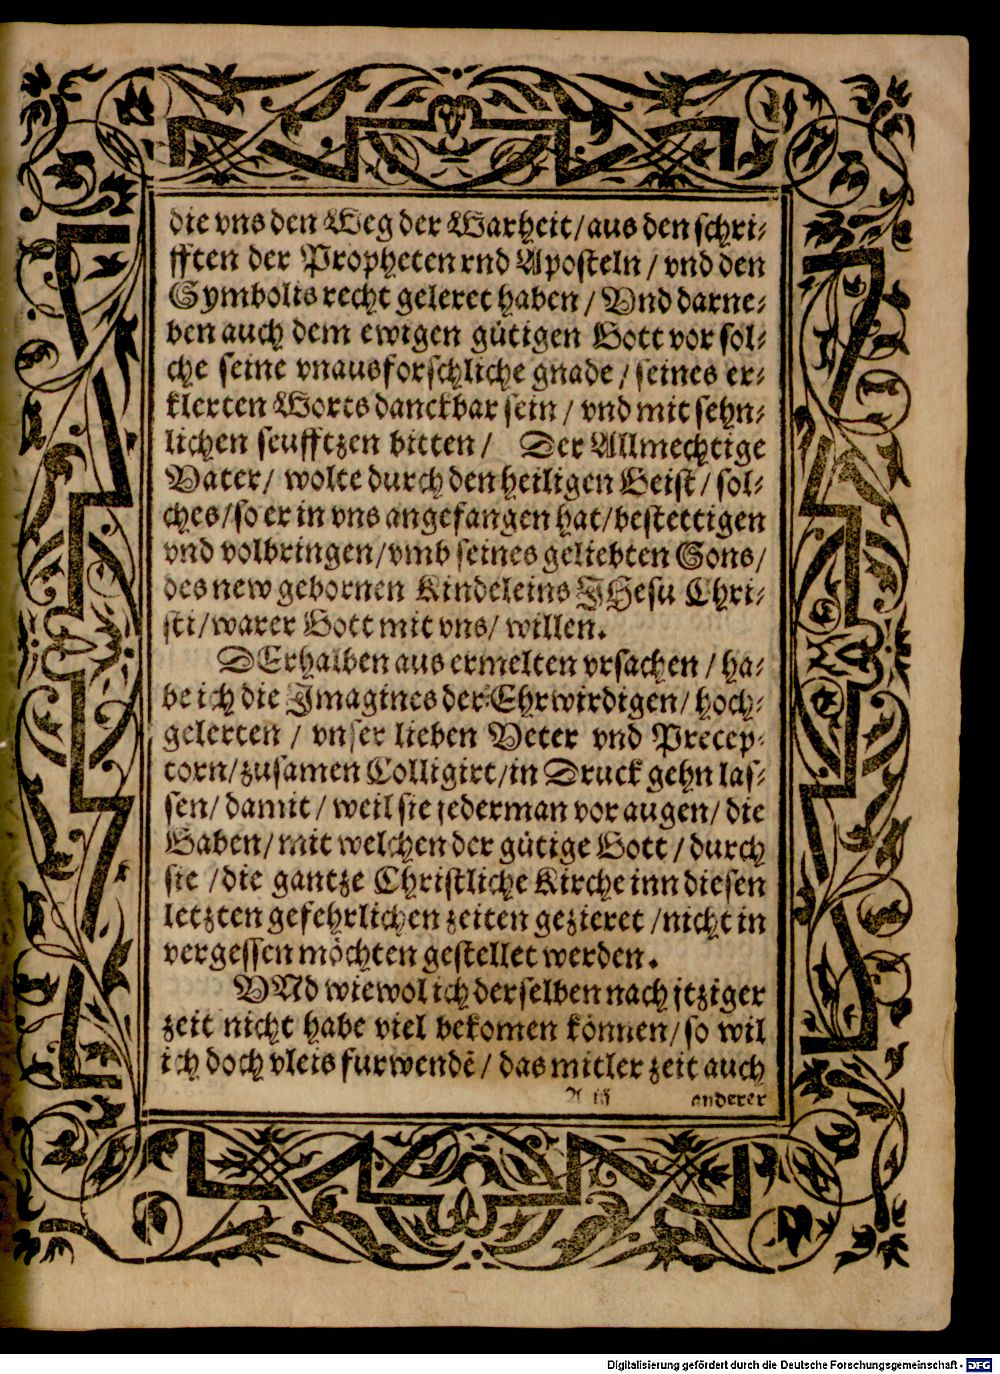 die vns den Weg der Warheit/aus den schri-
fften der Propheten rnd Aposteln/vnd den
Symbolis recht geleret haben/Vnd darne-
ben auch dem ewigen gütigen Gott vor sol-
che seine vnausforschliche gnade/seines er-
klerten Worts danckbar sein/vnd mit sehn-
lichen seufftzen bitten/ Der Allmechtige
Vater/wolte durch den heiligen Geist/sol-
ches/so er in vns angefangen hat/bestettigen
vnd volbringen/vmb seines geliebten Sons/
des new gebornen Kindeleins JHesu Chri-
sti/warer Gott mit vns/willen.
DErhalben aus ermelten vrsachen/ha-
be ich die Imagines der Ehrwirdigen/hoch-
gelerten/vnser lieben Veter vnd Precep-
torn/zusamen Colligirt/in Druck gehn las-
sen/damit/weil sie jederman vor augen/die
Gaben/mit welchen der gütige Gott/durch
sie/die gantze Christliche Kirche inn diesen
letzten gefehrlichen zeiten gezieret/nicht in
vergessen möchten gestellet werden.
VNd wiewol ich derselben nach jtziger
zeit nicht habe viel bekomen können/so wil
ich doch vleis furwendē/das mitler zeit auch
A iij anderer
Digitalisierung gefördert durch die Deutsche Forschungsgemeinschaft - DFG